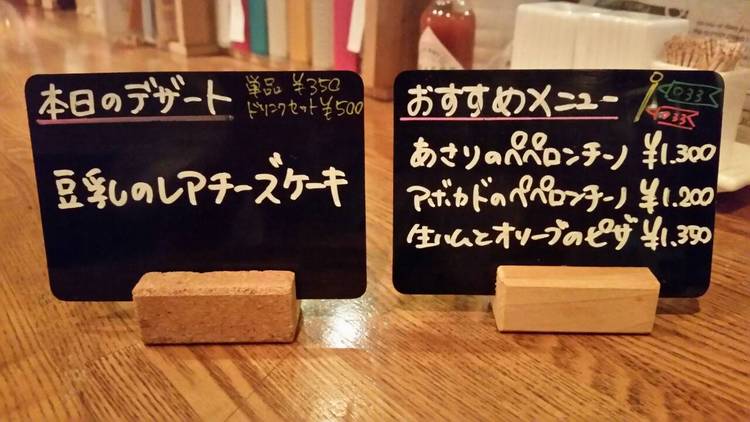 本日のデザート
単品 ¥350
ドリンクセット¥500
豆乳のレアチーズケーキ
おすすめメニュー
あさりのペペロンチーノ ¥1.300
アボカドのペペロンチーノ ¥1.200
生ハムとオリーブのピザ ¥1.350